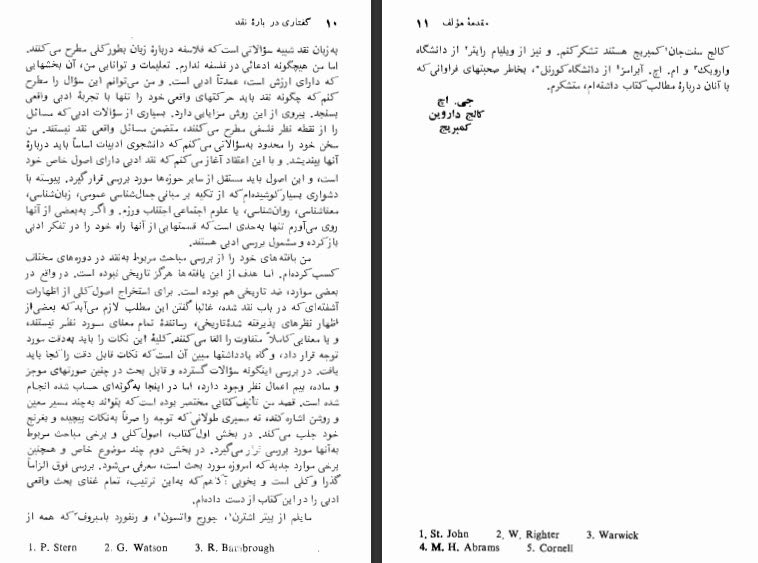 ۱۰ گفتاری در بارهٔ نقد
به‌زبان نقد شبیه سؤالاتی است که فلاسفه دربارهٔ زبان بطورکلی مطرح می‌کنند.
اما من هیچگونه ادعائی در فلسفه ندارم. تعلیمات و توانایی من، آن بخشهایی
که دارای ارزش است، عمدتاً ادبی است. و من می‌توانم این سؤال را مطرح
کنم که چگونه نقد باید حرکتهای واقعی خود را تنها با تجربهٔ ادبی واقعی
بسنجد. پیروی از این روش مزایایی دارد. بسیاری از سؤالات ادبی که مسائل
را از نقطه نظر فلسفی مطرح می‌کنند، متضمن مسائل واقعی نقد نیستند. من
سخن خود را محدود به‌سؤالاتی می‌کنم که دانشجوی ادبیات اساساً باید دربارهٔ
آنها بیندیشد. و با این اعتقاد آغاز می‌کنم که نقد ادبی دارای اصول خاص خود
است، و این اصول باید مستقل از سایر حوزه‌ها مورد بررسی قرار گیرد. پیوسته با
دشواری بسیار کوشیده‌ام که از تکیه بر مبانی جمال‌شناسی عمومی، زبان‌شناسی،
معناشناسی، روان‌شناسی، یا علوم اجتماعی اجتناب ورزم. و اگر به‌بعضی از آنها
روی می‌آورم تنها به‌حدی است که قسمتهایی از آنها راه خود را در تفکر ادبی
باز کرده و مشمول بررسی ادبی هستند.
من یافته‌های خود را از بررسی مباحث مربوط به‌نقد در دوره‌های مختلف
کسب کرده‌ام. اما هدف از این یافته‌ها هرگز تاریخی نبوده است. در واقع در
بعضی موارد، ضد تاریخی هم بوده است. برای استخراج اصول کلی از اظهارات
آشفته‌ای که در باب نقد شده، غالباً گفتن این مطلب لازم می‌آید که بعضی از
اظهار نظرهای پذیرفته شدهٔ تاریخی، رسانندهٔ تمام معنای مورد نظر نیستند،
و یا معنایی کاملاً متفاوت را القا می‌کنند. کلیهٔ این نکات را باید به‌دقت مورد
توجه قرار داد، و گاه یادداشتها مبین آن است که نکات قابل دقت را کجا باید
یافت. در بررسی اینگونه سؤالات گسترده و قابل بحث در چنین صورتهای موجز
و ساده، بیم اعمال نظر وجود دارد، اما در اینجا به‌گونه‌ای حساب شده انجام
شده است. قصد من تألیف کتابی مختصر بوده است که بتواند به‌چند مسیر معین
و روشن اشاره کند، نه مسیری طولانی که توجه را صرفاً به‌نکات پیچیده و بغرنج
خود جلب می‌کند. در بخش اول کتاب، اصول کلی و برخی مباحث مربوط
به‌آنها مورد بررسی قرار می‌گیرد. در بخش دوم چند موضوع خاص و همچنین
برخی موارد جدید که امروزه مورد بحث است، معرفی می‌شود. بررسی فوق الزاماً
گذرا و کلی است و بخوبی آگاهم که به‌این ترتیب، تمام غنای بحث واقعی
ادبی را در این کتاب از دست داده‌ام.
مایلم از پیتر اشترن۱، جورج واتسون۲، و رنفورد بامبروف۳ که همه از
1. P. Stern 2. G. Watson 3. R. Bambrough
مقدمهٔ مؤلف ۱۱
کالج سنت‌جان۱ کمبریج هستند تشکر کنم. و نیز از ویلیام رایتر۲ از دانشگاه
وارویک۳ و ام. اچ. آبرامز۴ از دانشگاه کورنل۵، بخاطر صحبتهای فراوانی که
با آنان دربارهٔ مطالب کتاب داشته‌ام، متشکرم.
جی. اچ
کالج داروین
کمبریج
1. St. John 2. W. Righter 3. Warwick
4. M. H. Abrams 5. Cornell